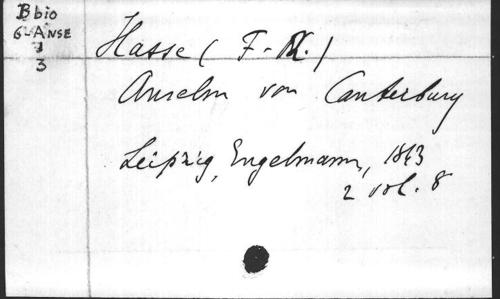 Bbio
6-ANSE
1
3
Hasse (F.-R.)
Anselm von Canterbury
Leipzig, Engelmann, 1843
2 vol. 8